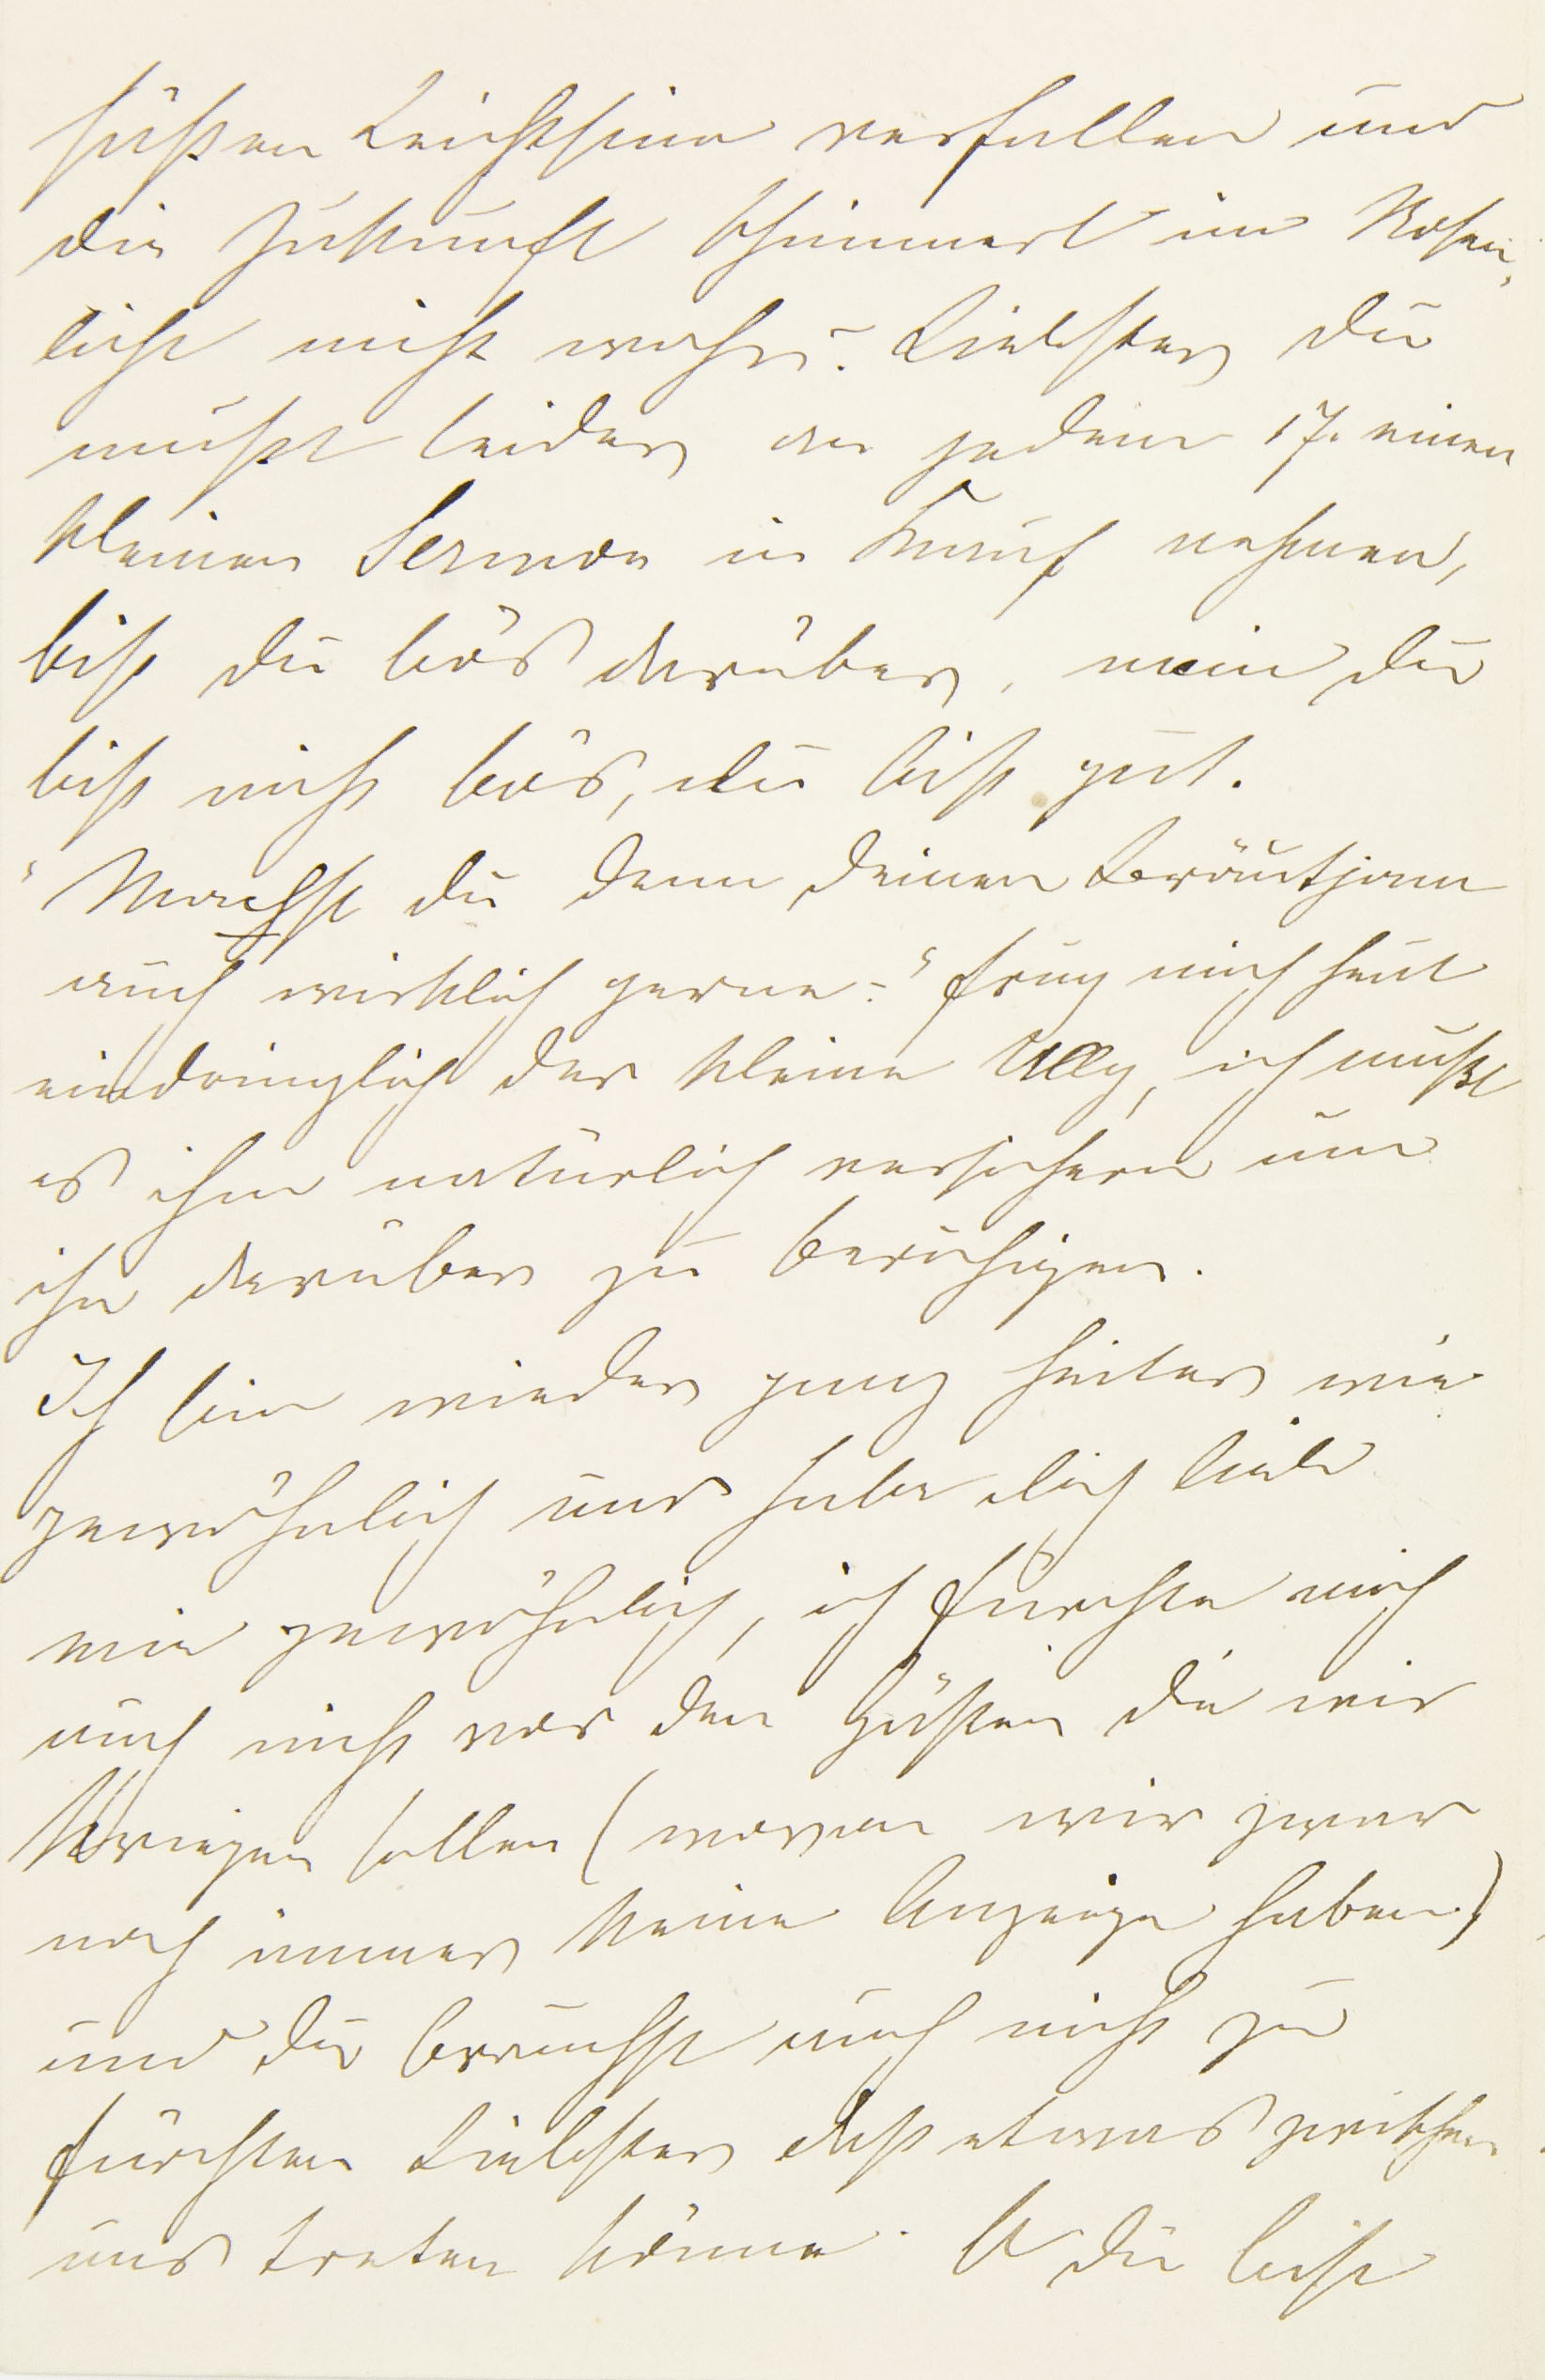 süßen Leichtsinn verfallen und
die Zukunft schimmert im Rosen,
licht nicht wahr? Liebster du
mußt leider an jedem 17. einen
kleinen Sermon in Kauf nehmen,
bist du bös darüber, nein du
bist nicht bös, du bist gut.
"Magst du denn deinen Bräutjam
auch wirklich gerne?" frug mich heut
eindringlich der kleine Ully, ich mußt
es ihm natürlich versichern um
ihn darüber zu beruhigen.
Ich bin wieder ganz heiter wie
gewöhnlich und habe dich lieb
wie gewöhnlich, ich fürchte mich
auch nicht vor den Gästen die wir
kriegen sollen (wovon wir zwar
noch immer keine Anzeige haben)
und du brauchst auch nicht zu
fürchten Liebster daß etwas zwischen
uns treten könne. O du bist